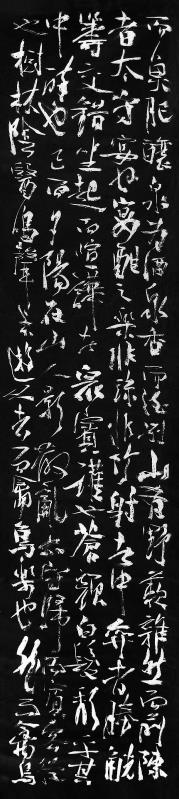 而泉肥釀泉為酒泉香而酒洌山肴野蔌雜然而前陳
者太守宴也宴酣之樂非絲非竹射者中弈者勝觥
籌交錯坐起而喧譁者眾賓讙也蒼顏白髮頹乎其
中醉也已而夕陽在山人影散亂太守歸而賓客從
也樹林陰翳鳴聲上下遊人去而禽鳥樂也然而禽鳥